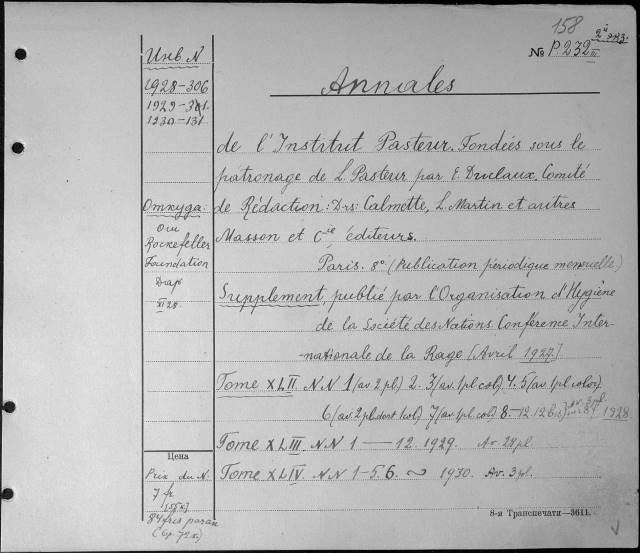 158
2й экз.
№ P.232 III
Инв N
1928-306
1929-301.
1930-131.
Annales
de l'Institut Pasteur. Fondées sous le
patronage de L. Pasteur par E. Duclaux. Comité
de Rédaction: Drs: Calmette, L. Martin et autres
Masson et Cie éditeurs.
Paris. 8° (Publication périodique mensuelle)
Supplement, publié par l'Organisation d'Hygiène
de la Société des Nations. Conférence Inter-
-nationale de la Rage [Avril 1927]
Tome XLII N N 1 (av 2 pl.) 2. 3 (av. 1 pl col.) 4. 5 (av 1 pl color.)
6 (av. 2 pl. dont 1 col.) 7 (av. 1 pl. col.) 8-12. 12 bis av. 3 pl. 1928
Tome XLIII. N N 1 — 12. 1929. Av 28 pl.
Tome XLIV. N N 1-5. 6. ~ 1930. Av. 3 pl.
Откуда:
Rockefeller
Foundation
Дар
XI 28.
Цена
Prix du N.
7 fr
84 frcs par an
(ср. 72 к)
8-я Транспечати—3611.